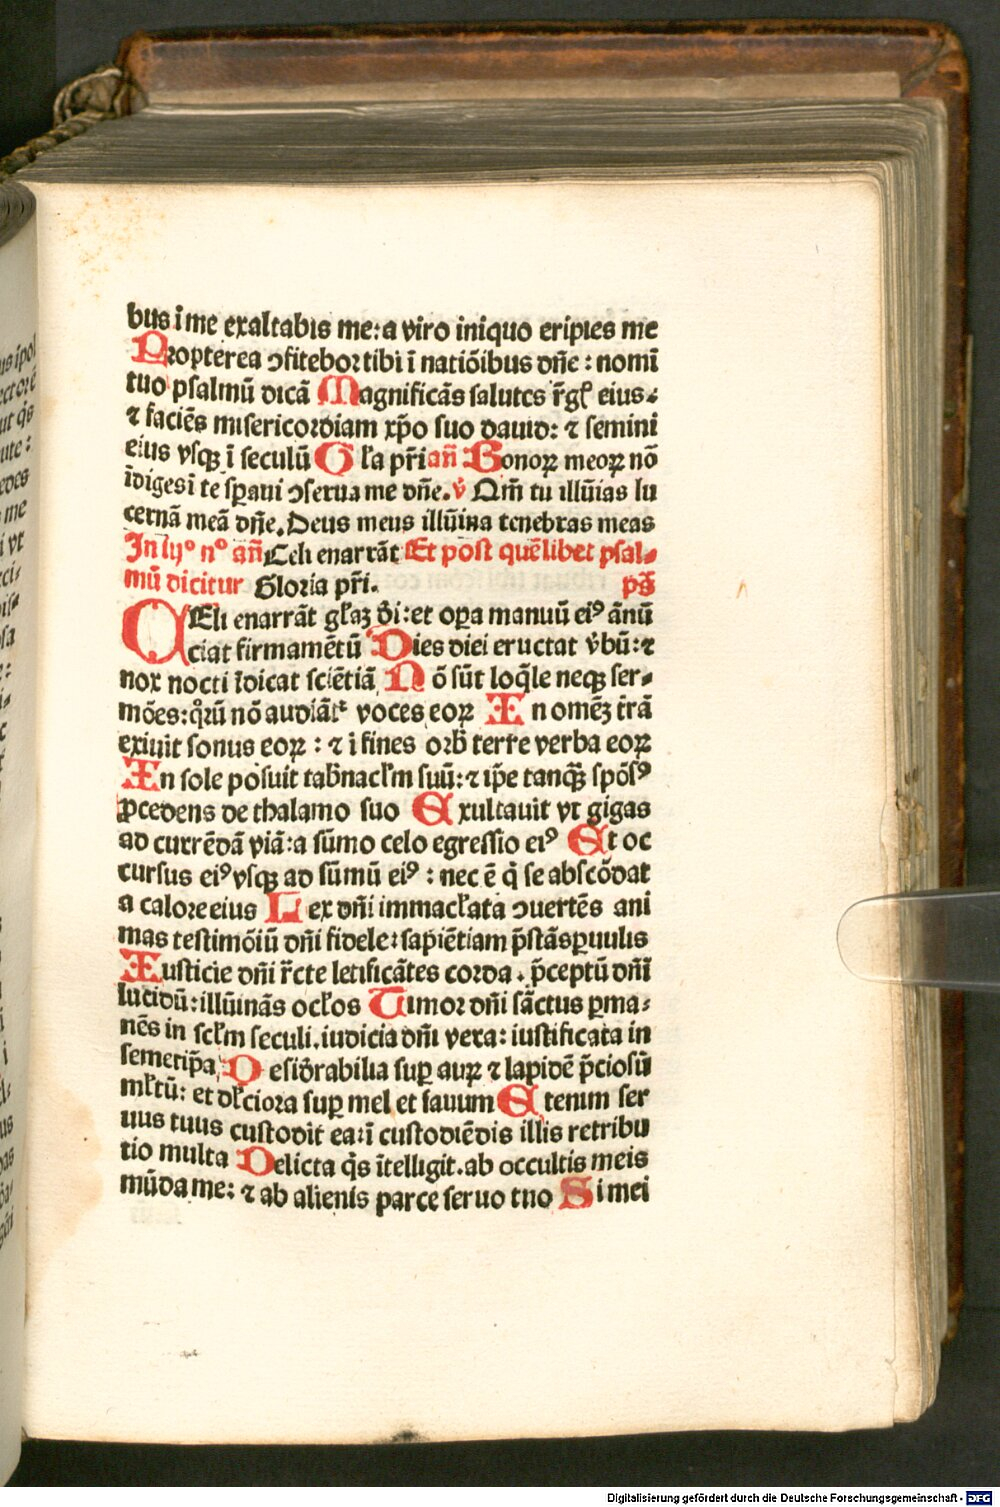 bus ī me exaltabis me: a viro iniquo eripies me
Propterea ↄfitebor tibi ī natiōibus dn̄e: nomī
tuo psalmū dicā Magnificās salutes r̄gꝭ eius:
⁊ faciēs misericordiam xp̄o suo dauid: ⁊ semini
eius vsqꝫ ī seculū Gl'a pr̄i an̄ Bonoꝝ meoꝝ nō
īdigesī te sꝑaui ↄserua me dn̄e. v̄ Qm̄ tu illūias lu
cernā meā dn̄e. Deus meus illūina tenebras meas
In ijº nº an̄ Celi enarrāt Et post quēlibet psal-
mū dicitur Gloria pr̄i. ps̄
CEli enarrāt gl'aꝫ dī: et oꝑa manuū eiꝰ ānū
ciat firmamētū Dies diei eructat v̄bū: ⁊
nox nocti īdicat sciētiā Nō sūt loq̄le neqꝫ ser-
mōes: q̄rū nō audiāt᷑ voces eoꝝ In omēꝫ t̄rā
exiuit sonus eoꝝ: ⁊ ī fines orb̄ terre verba eoꝝ
In sole posuit tab̄nacl'm suū: ⁊ ip̄e tanqꝫ spōsꝰ
ꝓcedens de thalamo suo Exultauit vt gigas
ad currēdā viā: a sūmo celo egressio eiꝰ Et oc
cursus eiꝰ vsqꝫ ad sūmū eiꝰ: nec ē q̄ se abscōdat
a calore eius Lex dn̄i immacl'ata ↄuertēs ani
mas testimōiū dn̄i fidele: sapiētiam p̄stās ꝑuulis
Iusticie dn̄i r̄cte letificātes corda. p̄ceptū dn̄i
lucidū: illūinās ocl'os Timor dn̄i sāctus ꝑma-
nēs in scl'm seculi. iudicia dn̄i vera: iustificata in
semetip̄a Desid̄rabilia suꝑ auꝝ ⁊ lapidē p̄ciosū
ml'tū: et dl'ciora suꝑ mel et fauum Etenim ser
uus tuus custodit ea: ī custodiēdis illis retribu
tio multa Delicta q̄s ītelligit. ab occultis meis
mūda me: ⁊ ab alienis parce seruo tuo Si mei
Digitalisierung gefördert durch die Deutsche Forschungsgemeinschaft - DFG